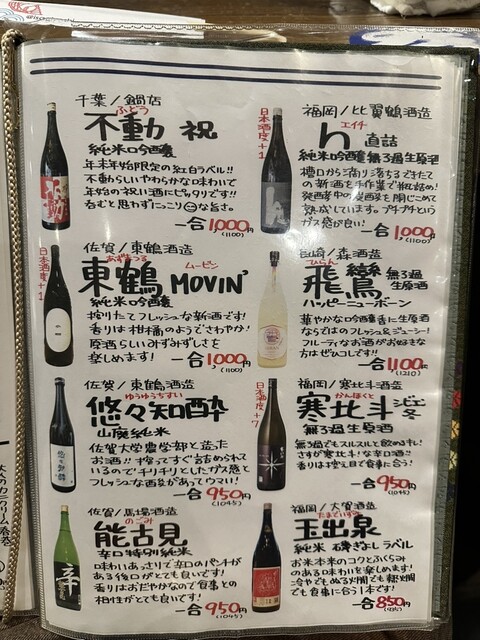 千葉/鍋店
ふどう
不動 祝
純米吟醸
年末年始限定の紅白ラベル!!
不動らしいやわらかな味わいで
年始の祝い酒にピッタリです!!
呑むと思わずにっこりな旨さ。
一合1,000円
(1100)
日本酒度+1
福岡/比翼鶴酒造
エイチ
h 直詰
純米吟醸無ろ過生原酒
槽口から滴り落ちるできたて
の新酒を手作業で瓶詰め!
ガス感が良い!
一合1,000円
(1100)
日本酒度+1
佐賀/東鶴酒造
あずまつる
ムービン
東鶴 MOVIN'
純米吟醸
搾りたてフレッシュな新酒です!
香りは柑橘のようでさわやか!
原酒らしいみずみずしさを
楽しめます!
一合1,000円
(1100)
長崎/森酒造
ひらん
飛鸞 無ろ過
生原酒
ハッピーニューボーン
華やかな吟醸香に生原酒
ならではのフレッシュ&ジューシー!
フルーティなお酒がお好きな
方はぜひコレです!!
一合1,100円
(1210)
佐賀/東鶴酒造
ゆうゆうちすい
悠々知酔
山廃純米
佐賀大学農学部と造った
お酒!!搾ってすぐ詰められて
いるのでチリチリとしたガス感と
フレッシュな酉酸があってウマい!
一合950円
(1045)
日本酒度+7
福岡/寒北斗酒造
かんほくと
寒北斗
無ろ過生原酒
無ろ過でもスルスルと飲めます!
さすが寒北斗!な辛口酒!!
香りは控え目で食事に合う!
一合950円
(1045)
佐賀/馬場酒造
のごみ
能古見
辛口特別純米
味わいあっさりで辛口のパンチが
ある後口がとても良いです!
香りはおだやかなので食事との
相性がとても良いです!
一合950円
(1045)
福岡/大賀酒造
たまでいずみ
玉出泉
純米 碑ぎよしラベル
お米本来のコクとふくらみ
のある味わいを楽しめます!
冷やでもぬる燗でも熱燗
でも食事に合う1本です!
一合850円
(935)